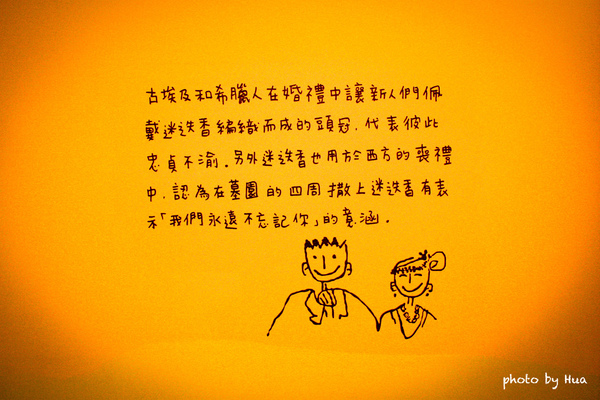 古埃及和希臘人在婚禮中讓新人們佩
戴迷迭香編織而成的頭冠，代表彼此
忠貞不渝。另外迷迭香也用於西方的喪禮
中，認為在墓園的四周撒上迷迭香有表
示「我們永遠不忘記你」的意涵。
photo by Hua